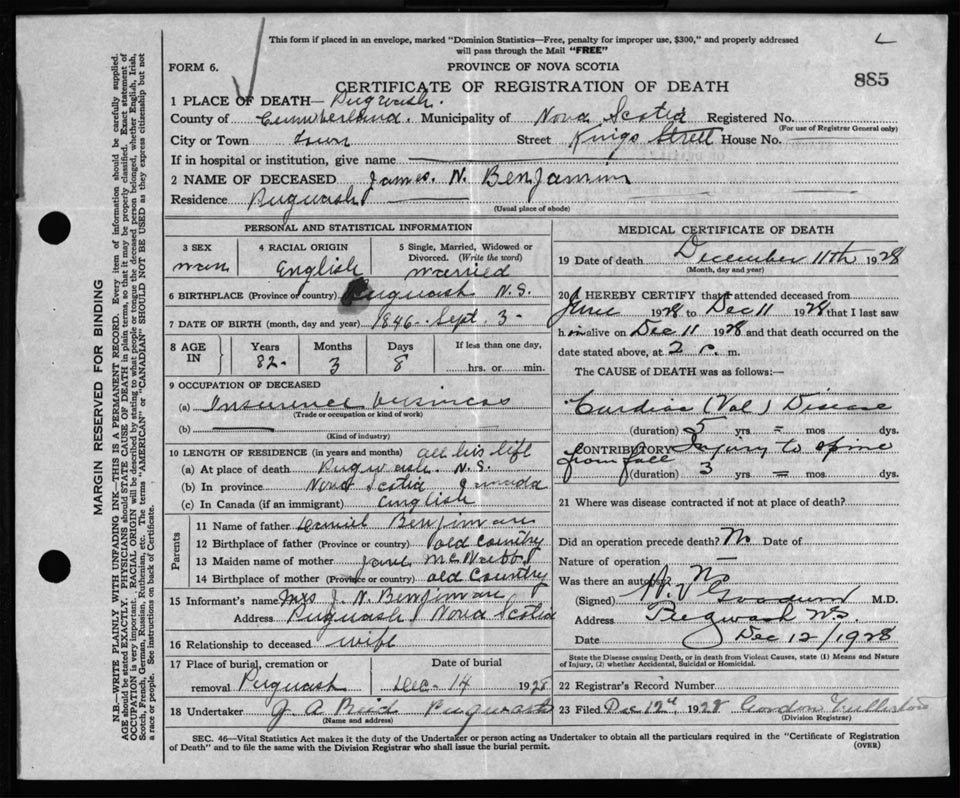 This form if placed in an envelope, marked "Dominion Statistics—Free, penalty for improper use, $300," and properly addressed
will pass through the Mail "FREE"
L
FORM 6.
PROVINCE OF NOVA SCOTIA
885
CERTIFICATE OF REGISTRATION OF DEATH
1 PLACE OF DEATH— Pugwash.
County of Cumberland. Municipality of Nova Scotia Registered No.
(For use of Registrar General only)
City or Town Town Street Kings Strett House No.
If in hospital or institution, give name
2 NAME OF DECEASED James. N. Benjamin
Residence Pugwash
(Usual place of abode)
PERSONAL AND STATISTICAL INFORMATION
3 SEX 4 RACIAL ORIGIN 5 Single, Married, Widowed or Divorced. (Write the word)
man English married
6 BIRTHPLACE (Province or country) Pugwash N.S.
7 DATE OF BIRTH (month, day and year) 1846. Sept. 3-
8 AGE IN Years Months Days If less than one day,
82- 3 8 hrs. or min.
9 OCCUPATION OF DECEASED
(a) Insurence business
(Trade or occupation or kind of work)
(b)
(Kind of industry)
10 LENGTH OF RESIDENCE (in years and months) all his life
(a) At place of death Pugwash. N.S.
(b) In province Nova Scotia
(c) In Canada (if an immigrant) English
Parents
11 Name of father
12 Birthplace of father (Province or country) old country
13 Maiden name of mother Jane
14 Birthplace of mother (Province or country) old country
15 Informant's name Mrs J. N.
Address Pugwash Nova Scotia
16 Relationship to deceased wife
17 Place of burial, cremation or Date of burial
removal Pugwash Dec- 14 1928
18 Undertaker J. A. Pugwash
(Name and address)
MEDICAL CERTIFICATE OF DEATH
19 Date of death December 11th 1928
(Month, day and year)
20 I HEREBY CERTIFY that I attended deceased from
June 1928 to Dec 11 1928 that I last saw
him alive on Dec 11 1928 and that death occurred on the
date stated above, at 2 P. m.
The CAUSE of DEATH was as follows:—
Cardiac (Val) Disease
(duration) 5 yrs. = mos. dys.
CONTRIBUTORY Injury to spine
from fall
(duration) 3 yrs. = mos. dys.
21 Where was disease contracted if not at place of death?
Did an operation precede death? No Date of
Nature of operation
Was there an autopsy No
(Signed) M.D.
Address Pugwash N.S.
Date Dec 12/1928
State the Disease causing Death, or in death from Violent Causes, state (1) Means and Nature
of Injury, (2) whether Accidental, Suicidal or Homicidal.
22 Registrar's Record Number
23 Filed Dec 12th 1928 Gordon
(Division Registrar)
SEC. 46—Vital Statistics Act makes it the duty of the Undertaker or person acting as Undertaker to obtain all the particulars required in the "Certificate of Registration
of Death" and to file the same with the Division Registrar who shall issue the burial permit.
(OVER)
MARGIN RESERVED FOR BINDING
N.B.—WRITE PLAINLY WITH UNFADING INK—THIS IS A PERMANENT RECORD. Every item of information should be carefully supplied.
AGE should be stated EXACTLY. PHYSICIANS should STATE CAUSE OF DEATH in plain terms, so that it may be properly classified. Exact statement of
OCCUPATION is very important. RACIAL ORIGIN will be described by stating to what people or tongue the deceased person belonged, whether English, Irish,
Scotch, French, German, Russian, Ruthenian, etc. The terms "AMERICAN" or "CANADIAN" SHOULD NOT BE USED as they express citizenship but not
a race or people. See instructions on back of Certificate.